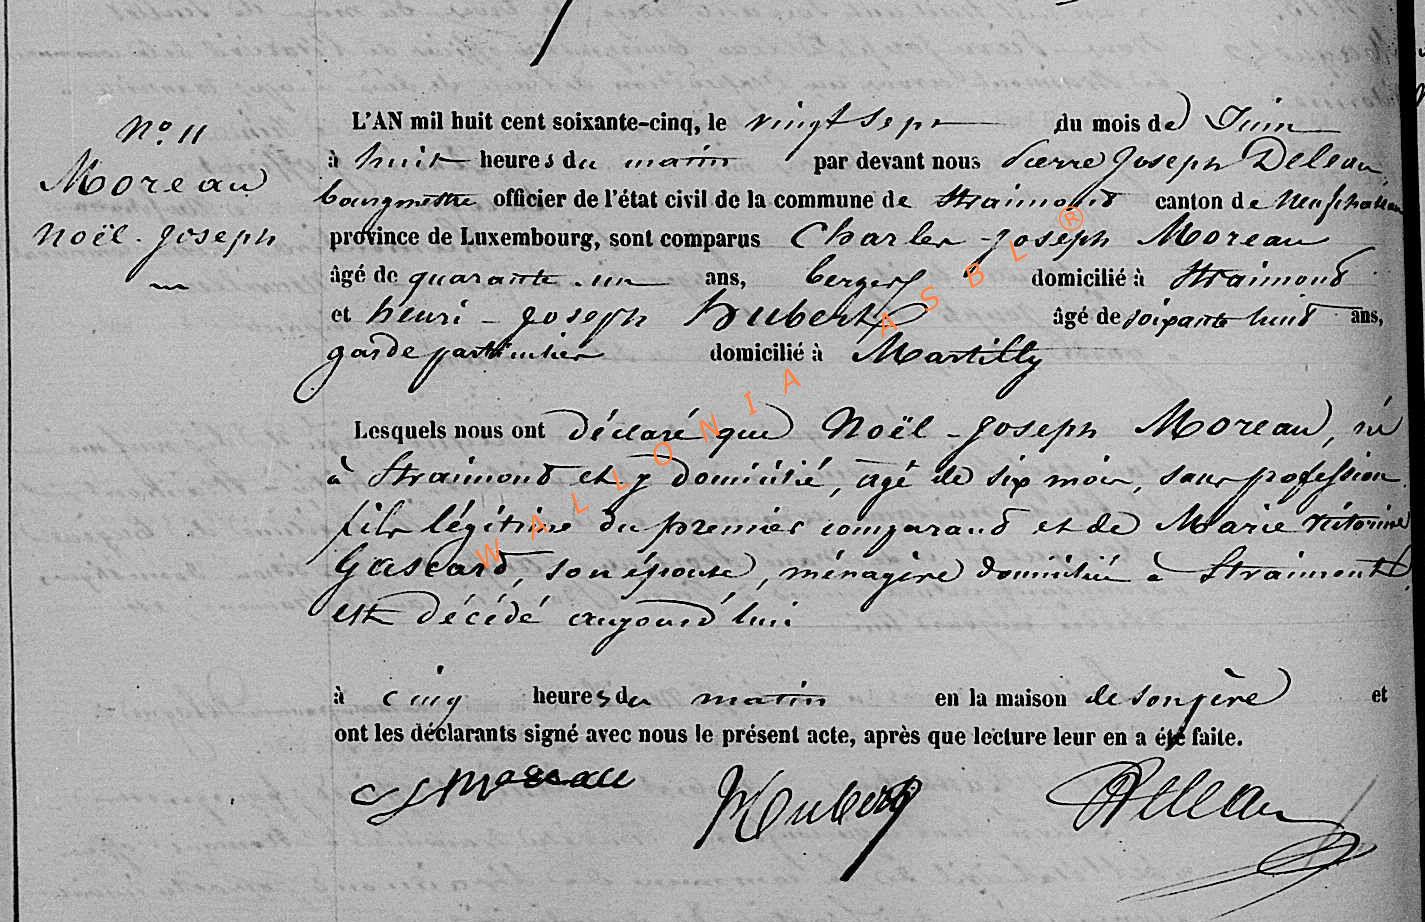 N° 11
Moreau
Noël-Joseph
L'AN mil huit cent soixante-cinq, le vingt sept du mois de Juin
à huit heures du matin par devant nous Pierre Joseph Deleau,
bourgmestre officier de l'état civil de la commune de Straimont canton de Neufchâteau
province de Luxembourg, sont comparus Charles-Joseph Moreau
âgé de quarante-un ans, berger domicilié à Straimont
et henri-Joseph Hubert âgé de soixante huit ans,
garde particulier domicilié à Martilly
Lesquels nous ont déclaré que Noël-Joseph Moreau, né
à Straimont et y domicilié, âgé de six mois, sans profession
fils légitime du premier comparant et de Marie Victorine
Gascard, son épouse, ménagère domiciliée à Straimont,
est décédé aujourd'hui.
à cinq heures du matin en la maison de son père et
ont les déclarants signé avec nous le présent acte, après que lecture leur en a été faite.
C J Moreau Hubert PJDeleau
WALLONIA ASBL ®